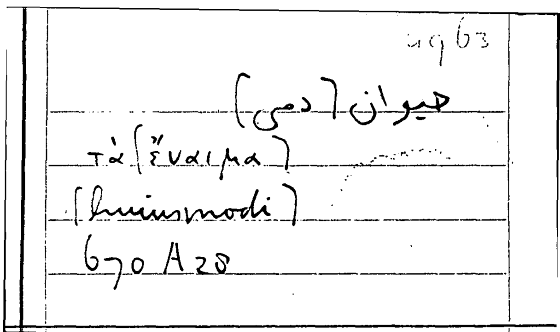 ug 63
حيوان [دمى]
τὰ [ἔναιμα]
[huiusmodi]
670 A 28